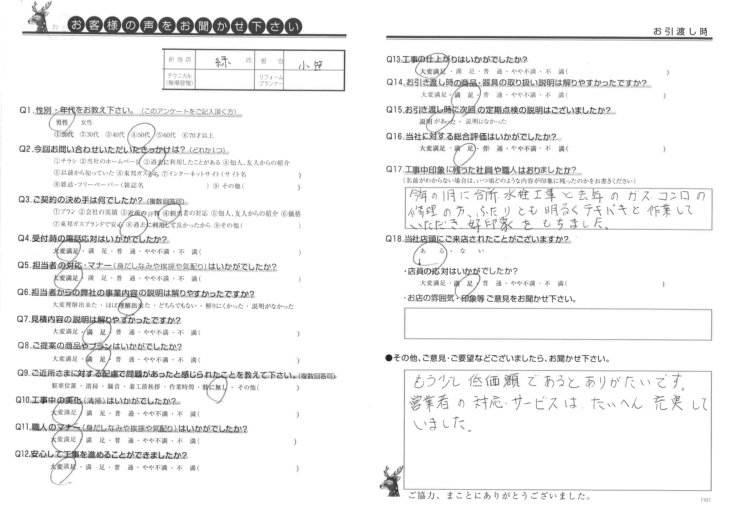 お客様の声をお聞かせ下さい
担当店 緑 店 担当 小笹
テクニカル(現場管理) リフォームプランナー
Q1.性別・年代をお教え下さい。(このアンケートをご記入頂く方)
男性 女性
①20代 ②30代 ③40代 ④50代 ⑤60代 ⑥70才以上
Q2.今回お問い合わせいただいたきっかけは?(どれか1つ)
①チラシ ②当社のホームページ ③過去に利用したことがある ④知人、友人からの紹介
⑤以前から知っていた ⑥東邦ガスから ⑦インターネットサイト(サイト名 )
⑧雑誌・フリーペーパー(雑誌名 ) ⑨その他( )
Q3.ご契約の決め手は何でしたか?(複数回答可)
①プラン ②会社の実績 ③近所の評判 ④担当者の対応 ⑤知人、友人からの紹介 ⑥価格
⑦東邦ガスブランドで安心 ⑧過去に利用して良かったから ⑨その他( )
Q4.受付時の電話応対はいかがでしたか?
大変満足・満 足・普 通・やや不満・不 満( )
Q5.担当者の対応・マナー(身だしなみや挨拶や気配り)はいかがでしたか?
大変満足・満 足・普 通・やや不満・不 満( )
Q6.担当者からの弊社の事業内容の説明は解りやすかったですか?
大変理解出来た・ほぼ理解出来た・どちらでもない・解りにくかった・説明がなかった
Q7.見積内容の説明は解りやすかったですか?
大変満足・満 足・普 通・やや不満・不 満( )
Q8.ご提案の商品やプランはいかがでしたか?
大変満足・満 足・普 通・やや不満・不 満( )
Q9.ご近所さまに対する配慮で問題があったと感じられたことを教えて下さい。(複数回答可)
駐車位置・清掃・騒音・着工前挨拶・作業時間・特に無し・その他( )
Q10.工事中の美化(清掃)はいかがでしたか?
大変満足・満 足・普 通・やや不満・不 満( )
Q11.職人のマナー(身だしなみや挨拶や気配り)はいかがでしたか?
大変満足・満 足・普 通・やや不満・不 満( )
Q12.安心して工事を進めることができましたか?
大変満足・満 足・普 通・やや不満・不 満( )
お引渡し時
Q13.工事の仕上がりはいかがでしたか?
大変満足・満 足・普 通・やや不満・不 満( )
Q14.お引き渡し時の商品・器具の取り扱い説明は解りやすかったですか?
大変満足・満 足・普 通・やや不満・不 満( )
Q15.お引き渡し時に次回の定期点検の説明はございましたか?
説明があった・説明になかった
Q16.当社に対する総合評価はいかがでしたか?
大変満足・満 足・普 通・やや不満・不 満( )
Q17.工事中印象に残った社員や職人はおりましたか?
(名前がわからない場合は、いつ頃どのような内容が印象に残ったのかをお書きください)
今年の1月に台所水栓工事と去年のガスコンロの
修理の方、ふたりとも明るくテキパキと作業して
いただき好印象をもちました。
Q18.当社店頭にご来店されたことがございますか?
ある・ない
・店員の応対はいかがでしたか?
大変満足・満 足・普 通・やや不満・不 満( )
・お店の雰囲気・印象等ご意見をお聞かせ下さい。
●その他、ご意見・ご要望などございましたら、お聞かせ下さい。
もう少し低価額であるとありがたいです。
営業者の対応・サービスは、たいへん充実して
いました。
ご協力、まことにありがとうございました。